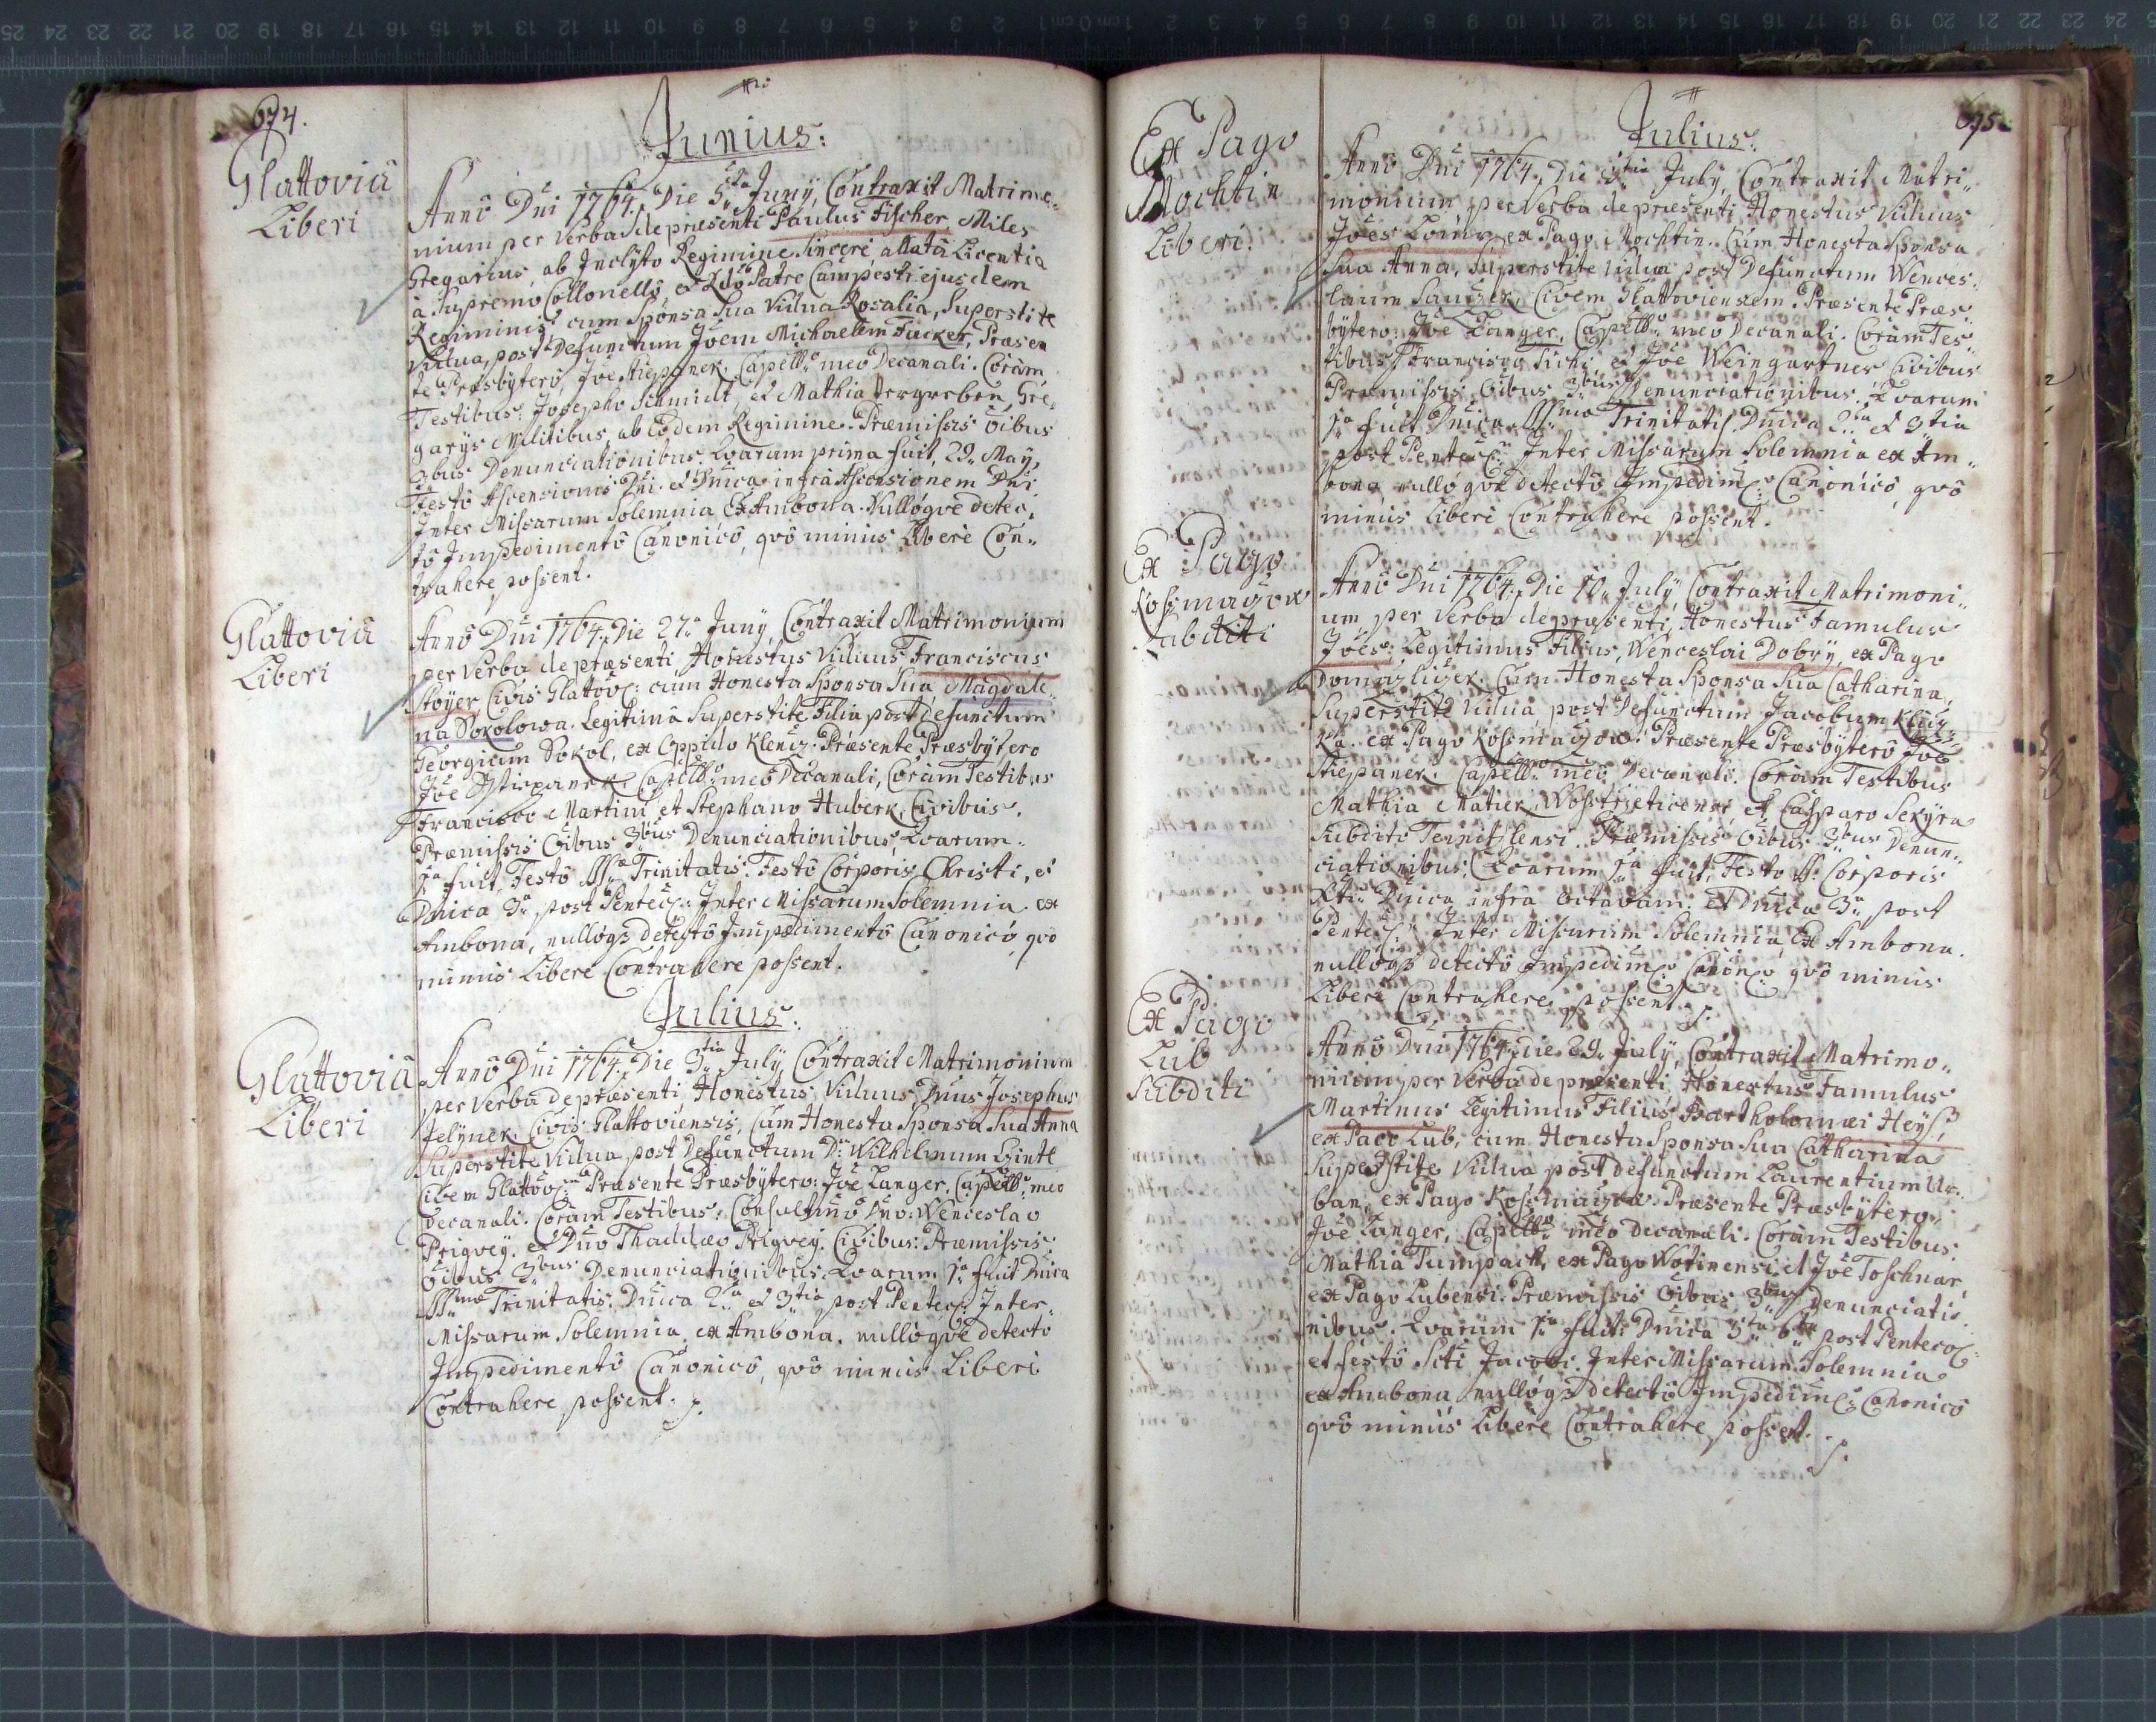 674.
Junius:
Glattoviâ
Liberi
Annô Dni 1764. Die 5ta Juny, Contraxit Matrimo„
nium per Verba de præsenti Paulus Fischer, Miles
Gregarius, ab Inclyto Regimine Sinceri, allatâ Licentia
à Supremo Collonello, et Patre Campestri ejusdem
Regiminis cum Sponsa Sua Vidua Rosalia, Superstite
Vidua, post Defunctum Joem Michaelem Fucker, Præsen
te Præsbytero, Joe Stiepanek. Capell: meo Decanali. Coram
Testibus: Josepho Schmidt, et Mathia Gre„
garys Militibus, ab Eodem Regimine. Præmissis oibus
3bus Denunciationibus Qvarum prima fuit, 29. May,
Festô Ascensionis Dni. et Dnica infra Ascensionem Dni.
Inter Missarum Solemnia Ex Ambona. Nullôqve detec„
tô Impedimentô Canonicô, qvô minus Liberè Con„
trahere possent.
Glattoviâ
Liberi
Annô Dni 1764. Die 27. Juny, Contraxit Matrimonium
per Verba de præsenti Honestus Viduus Franciscus
Stoyer Civis Glatov: cum Honesta Sponsa Sua Magdale„
na Sokolowa, Legitimâ Superstite Filia post defunctum
Georgium Sokol, ex Oppido Klencz. Præsente Præsbytero
Joe Stiepanek, Capell: meo Decanali, Coram Testibus
Francisco Martini, et Stephano Huberk, Civibus.
Præmissis Oibus 3bus Denunciationibus, Qvarum„
1a fuit, Festô SSæ Trinitatis. Festô Corporis Christi, et
Dnica 3a post Pentec: Inter Missarum Solemnia. ex
Ambona, nullôq3 detectô Impedimentô Canonicô, qvo
minus Liberè Contrahere possent.
Julius:
Glattoviâ
Liberi
Annô Dni 1764. Die 3tia July, Contraxit Matrimonium
per Verba de præsenti, Honestus Viduus Dnus Josephus
Jelÿnek, Civis Glattoviensis, Cum Honesta Sponsa Sua Anna
Superstite Vidua, post Defunctum D: Wilhelmum Gintl
Civem Glattov: Præsente Præsbytero: Joe Langer, Capell: meo
decanali. Coram Testibus: Consultmô Dno: Wenceslao
Prigvey. et Dno Thaddæo Prigvey. Civibus: Præmissis
Oibus 3bus Denunciationibus Qvarum 1a fuit Dnica
SSmæ Trinitatis. Dnica 2da et 3tia post Pentec: Inter„
Missarum Solemnia, ex Ambona. nullôqve detecto
Impedimentô Canonicô, qvô minus Liberè
Contrahere possent.
675.
Julius:
Ex Pago
Mochtin
Liberi:
Annô Dni 1764. Die July, Contraxit Matri„
monium per Verba de præsenti, Honestus Viduus
Joes ex Pago Mochtin. Cum Honesta Sponsa
Sua Anna, Superstite Vidua post Defunctum Wences„
laum Civem Glattoviensem. Præsente Præs„
bytero: Joe Langer, Capell: meo Decanali. Coram Tes„
tibus: Francisco et Joe Weingartner Civibus
Præmissis Oibus 3bus Denunciationibus. Qvarum
1a fuit Dnica SSmæ Trinitatis Dnica 2da et 3tia
post Pentec: Inter Missarum Solemnia ex Am„
bona, nullôqve detectô Impedim: Canonicô, qvô
minus Liberè Contrahere possent.
Ex Pago
Kossmaczow
Subditi
Annô Dni 1764. Die 10. July, Contraxit Matrimoni„
um per Verba de præsenti, Honestus Famulus
Joes: Legitimus Filius, Wenceslai Dobrÿ, ex Pago
Domazliczek. Cum Honesta Sponsa Sua Catharina,
Superstite Vidua post Defunctum Jacobum
ex Pago Kossmaczow: Præsente Præsbyterô Joe
Stiepanek. Capell: meô Decanali. Coram Testibus
Mathia et Casparo Sekÿra
Subdito Præmissis Oibus 3bus Denun„
ciationibus, Qvarum 1a fuit, Festo SS: Corporis
Xti. Dnica infra octavam. et Dnica 3a post
Pentec: Inter Missarum Solemnia Ex Ambona.
nullôq3 detectô Impedim: Canon: qvô minus
Liberè Contrahere possent.
Ex Pago
Lub
Subditi
Annô Dni 1764. die 29. July, Contraxit Matrimo„
nium per Verba de præsenti Honestus Famulus
Martinus Legitimus Filius Bartholomæi Heyß,
ex Pago Lub, cum Honesta Sponsa Sua Catharina
Superstite Vidua post defunctum Laurentium Ur„
ban, ex Pago Kossmaczow. Præsente Præsbytero
Joe Langer, Capell: meô decanali. Coram Testibus
Mathia ex Pago et Joe Toschnar,
ex Pago Lubensi. Præmissis Oibus 3bus denunciatio„
nibus. Qvarum 1a fuit Dnica 5ta 6ta post Penteco:
et festô Scti Jacobi. Inter Missarum Solemnia
ex Ambona, nullôq3 detectô Impedim: Canonicô
qvô minus Liberè Contrahere possent.